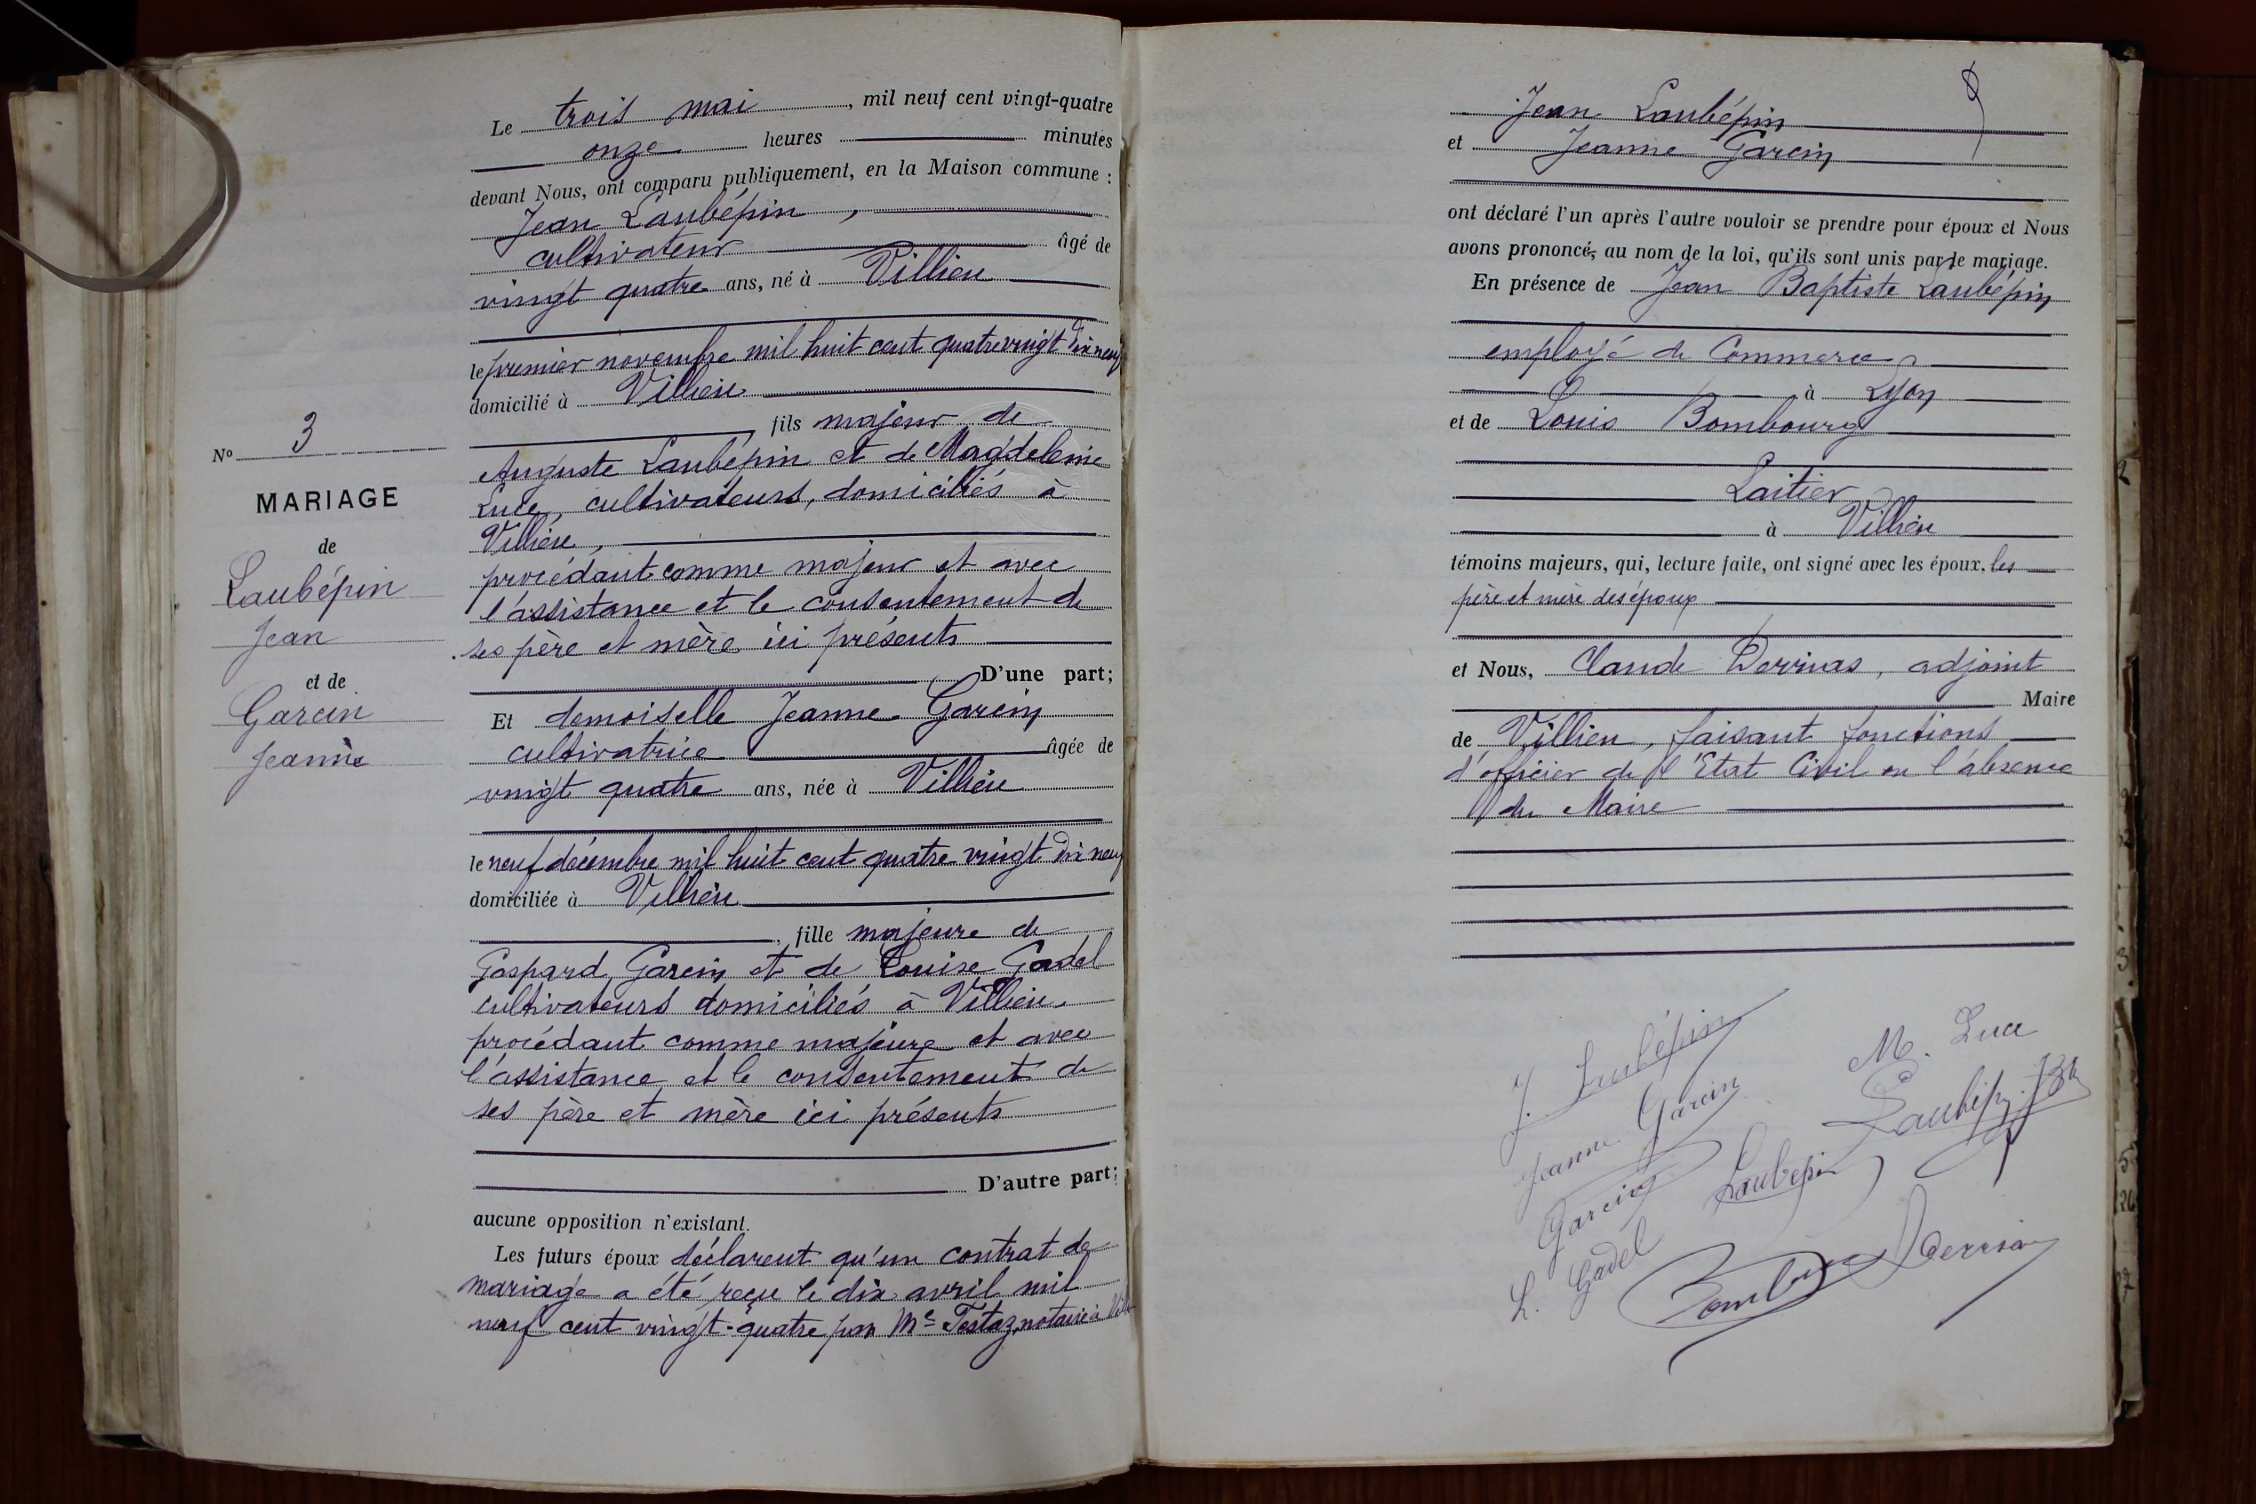 Le trois mai, mil neuf cent vingt-quatre
onze heures minutes
devant Nous, ont comparu publiquement, en la Maison commune :
Jean Laubépin,
cultivateur âgé de
vingt quatre ans, né à Villieu
le premier novembre mil huit cent quatre vingt dix neuf
domicilié à Villieu
fils majeur de
Auguste Laubépin et de Magdeleine
Luce, cultivateurs, domiciliés à
Villieu,
procédant comme majeur et avec
l'assistance et le consentement de
ses père et mère ici présents
D'une part;
Et demoiselle Jeanne Garcin
cultivatrice âgée de
vingt quatre ans, née à Villieu
le neuf décembre mil huit cent quatre vingt dix neuf
domiciliée à Villieu
, fille majeure de
Gaspard Garcin et de Louise Gadel
cultivateurs domiciliés à Villieu.
procédant comme majeure et avec
l'assistance et le consentement de
ses père et mère ici présents
D'autre part;
aucune opposition n'existant.
Les futurs époux déclarent qu'un contrat de
mariage a été reçu le dix avril mil
neuf cent vingt-quatre par Me Testaz, notaire à
No 3
MARIAGE
de
Laubépin
Jean
et de
Garcin
Jeanne
Jean Laubépin
et Jeanne Garcin
ont déclaré l'un après l'autre vouloir se prendre pour époux et Nous
avons prononcé, au nom de la loi, qu'ils sont unis par le mariage.
En présence de Jean Baptiste Laubépin
employé de Commerce
à Lyon
et de Louis Bombourg
Laitier
à Villieu
témoins majeurs, qui, lecture faite, ont signé avec les époux. les
père et mère des époux
et Nous, Claude Derrias, adjoint
Maire
de Villieu, faisant fonctions
d'officier de l'Etat Civil en l'absence
du Maire
J. Laubépin
M. Luce
Jeanne Garcin
Laubépin JBte
Garcin
Laubépin
L. Gadel
Bombourg
Derrias